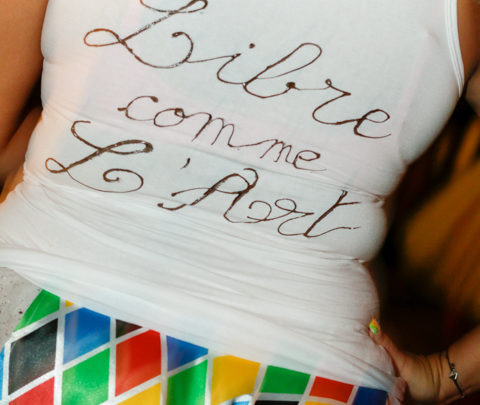 Libre
comme
L'Art